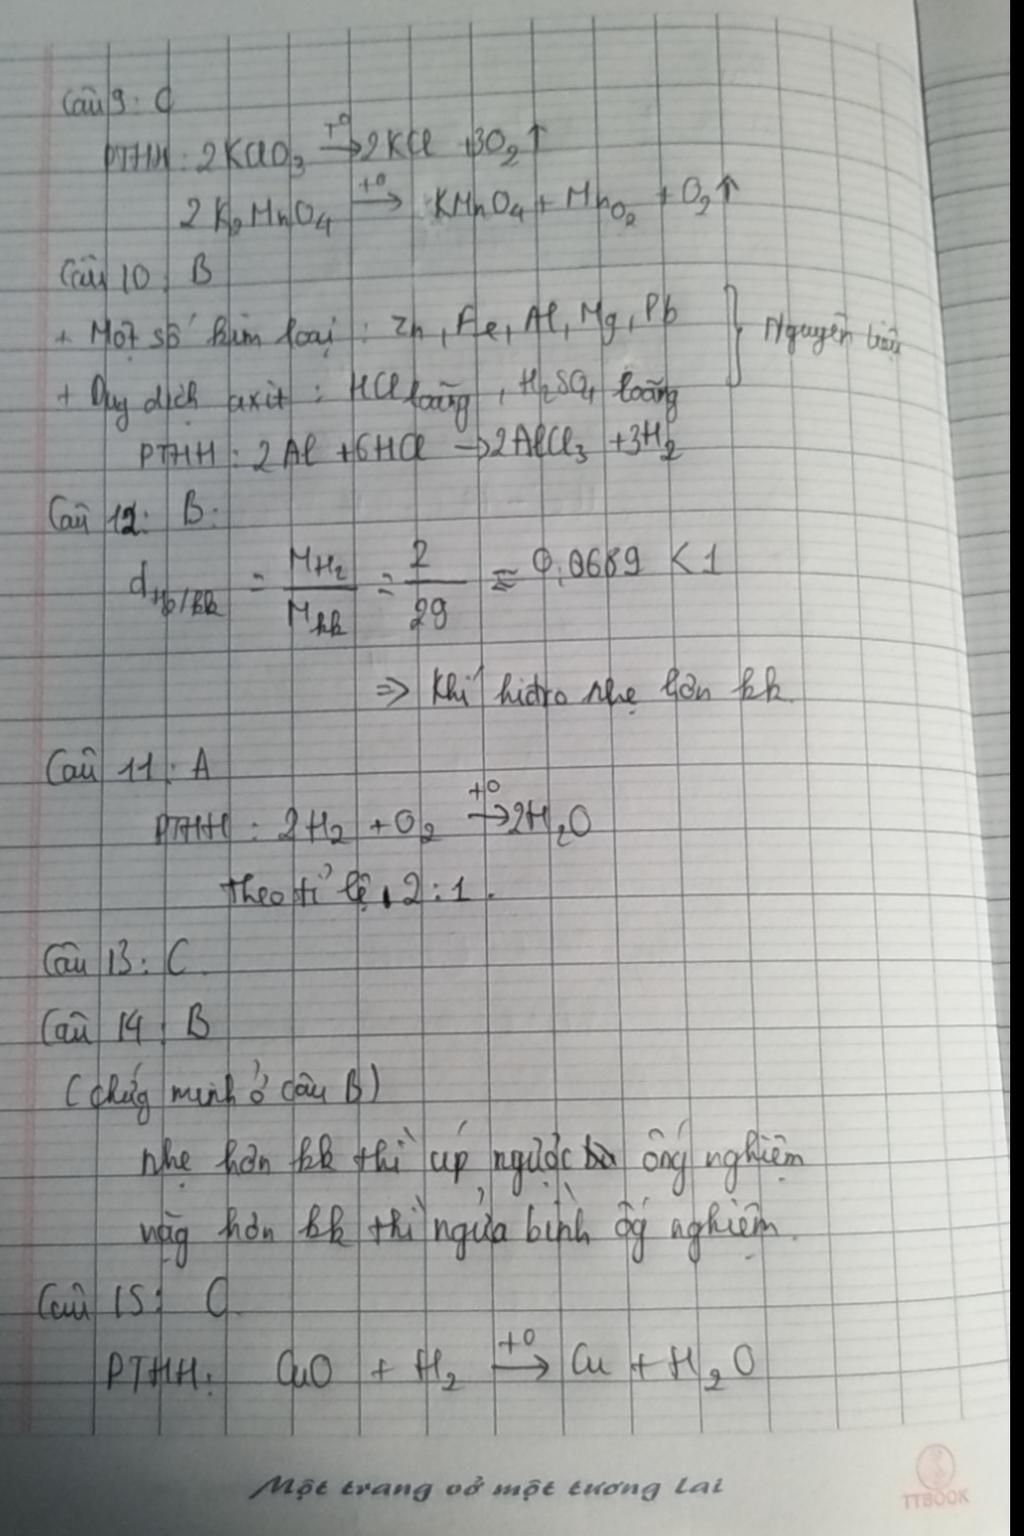 Câu 9: C
PTHH: 2KClO3 t° → 2KCl + 3O2 ↑
2K2MnO4 t° → KMnO4 + MnO2 + O2 ↑
Câu 10: B
+ Một số kim loại: Zn, Fe, Al, Mg, Pb } Nguyên liệu
+ Dug dịch axit: HCl loãng, H2SO4 loãng
PTHH: 2Al + 6HCl → 2AlCl3 + 3H2
Câu 12: B.
d H2/kk = M H2 / M kk = 2 / 29 ≈ 0,0689 < 1
=> Khí hiđro nhẹ hơn kk.
Câu 11: A
PTHH: 2H2 + O2 t° → 2H2O
theo tỉ lệ 2:1.
Câu 13: C.
Câu 14: B
(chứg minh ở câu B)
nhẹ hơn kk thì úp ngược ống nghiệm
nặg hơn kk thì ngửa bình ốg nghiệm.
Câu 15: C.
PTHH: CuO + H2 t° → Cu + H2O
Một trang vở một tương lai
TTBOOK